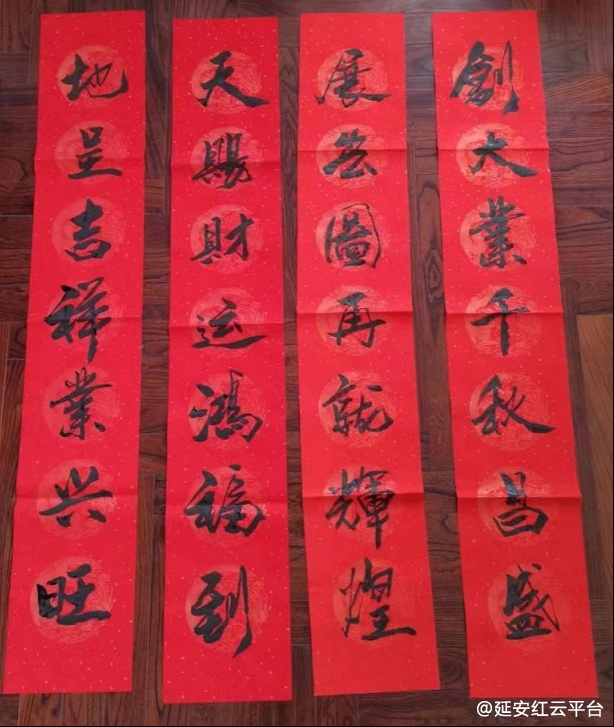 創大業千秋昌盛
展宏圖再就輝煌
天賜財运鴻福到
地呈吉祥業兴旺
@延安红云平台